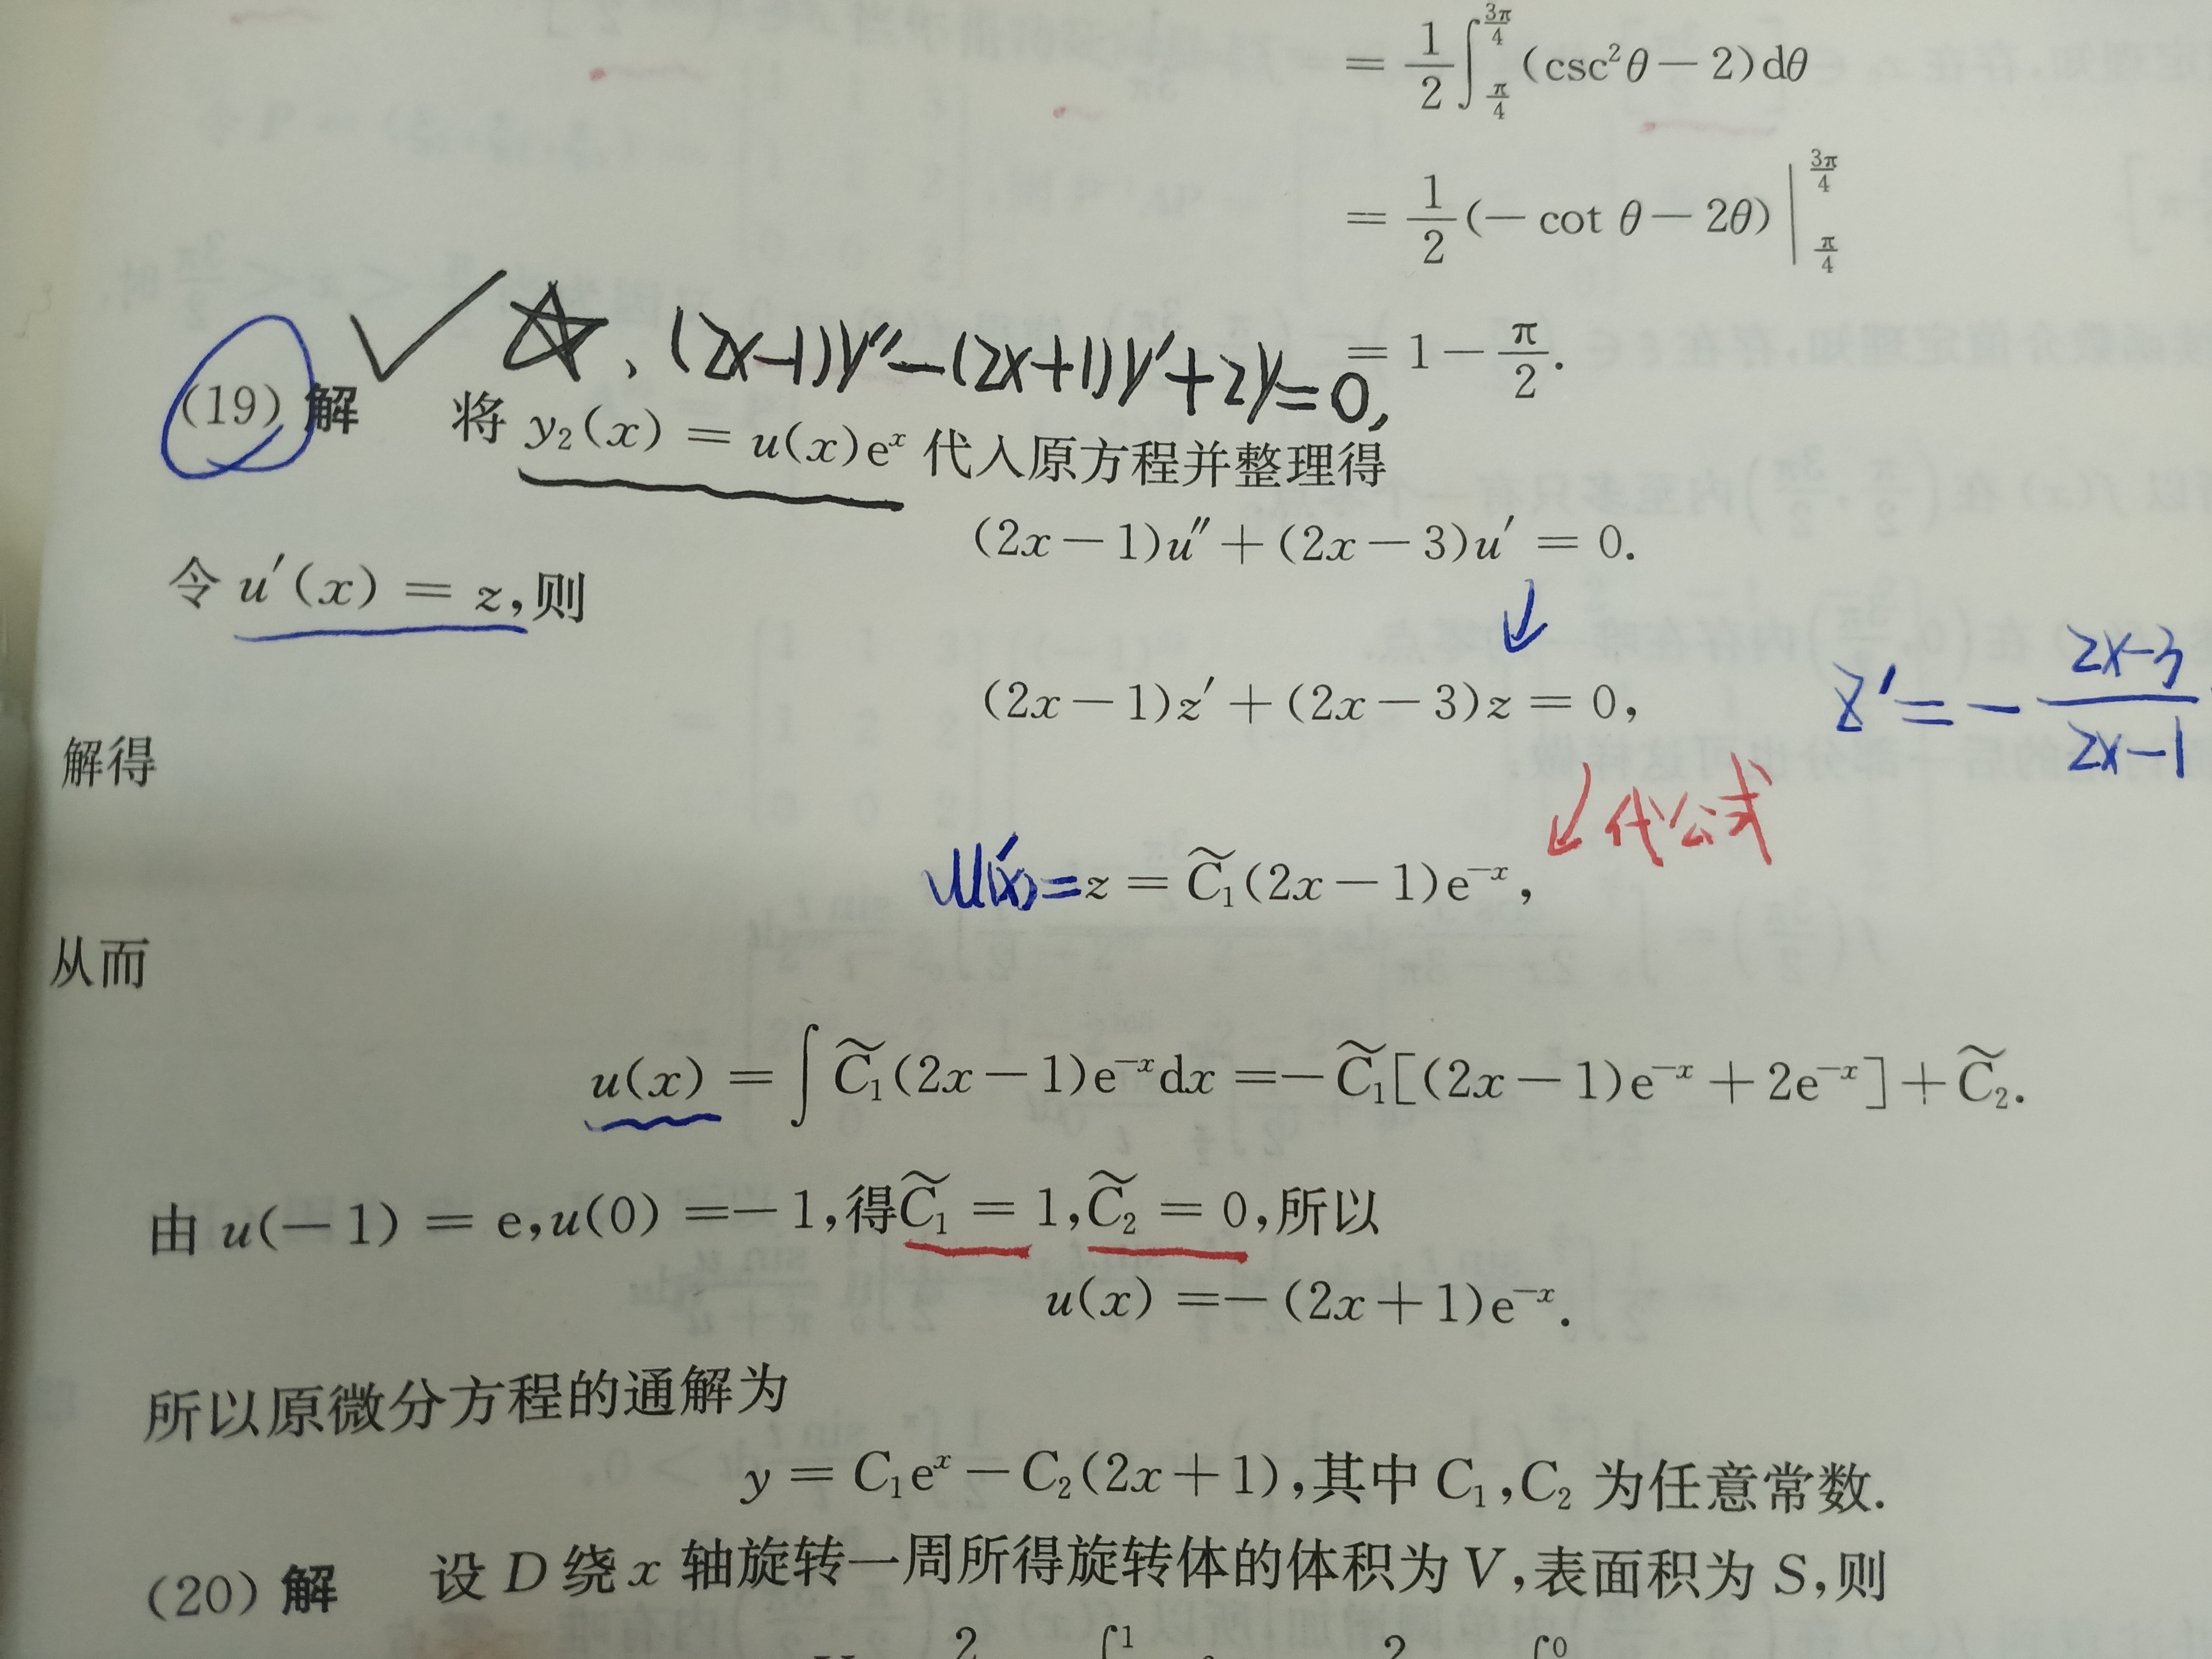 = 1/2 ∫_{π/4}^{3π/4} (csc²θ − 2)dθ
= 1/2 (− cot θ − 2θ) |_{π/4}^{3π/4}
= 1 − π/2.
☆、(2x−1)y″−(2x+1)y′+2y=0,
(19) 解 将 y₂(x) = u(x)eˣ 代入原方程并整理得
(2x − 1)u″ + (2x − 3)u′ = 0.
令 u′(x) = z,则
(2x − 1)z′ + (2x − 3)z = 0,
z′ = − (2x−3)/(2x−1)
解得
代公式
u′(x) = z = C̃₁(2x − 1)e⁻ˣ,
从而
u(x) = ∫ C̃₁(2x − 1)e⁻ˣdx =− C̃₁[(2x − 1)e⁻ˣ + 2e⁻ˣ] + C̃₂.
由 u(− 1) = e,u(0) =− 1,得 C̃₁ = 1,C̃₂ = 0,所以
u(x) =− (2x + 1)e⁻ˣ.
所以原微分方程的通解为
y = C₁eˣ − C₂(2x + 1),其中 C₁,C₂ 为任意常数.
(20) 解 设 D 绕 x 轴旋转一周所得旋转体的体积为 V,表面积为 S,则